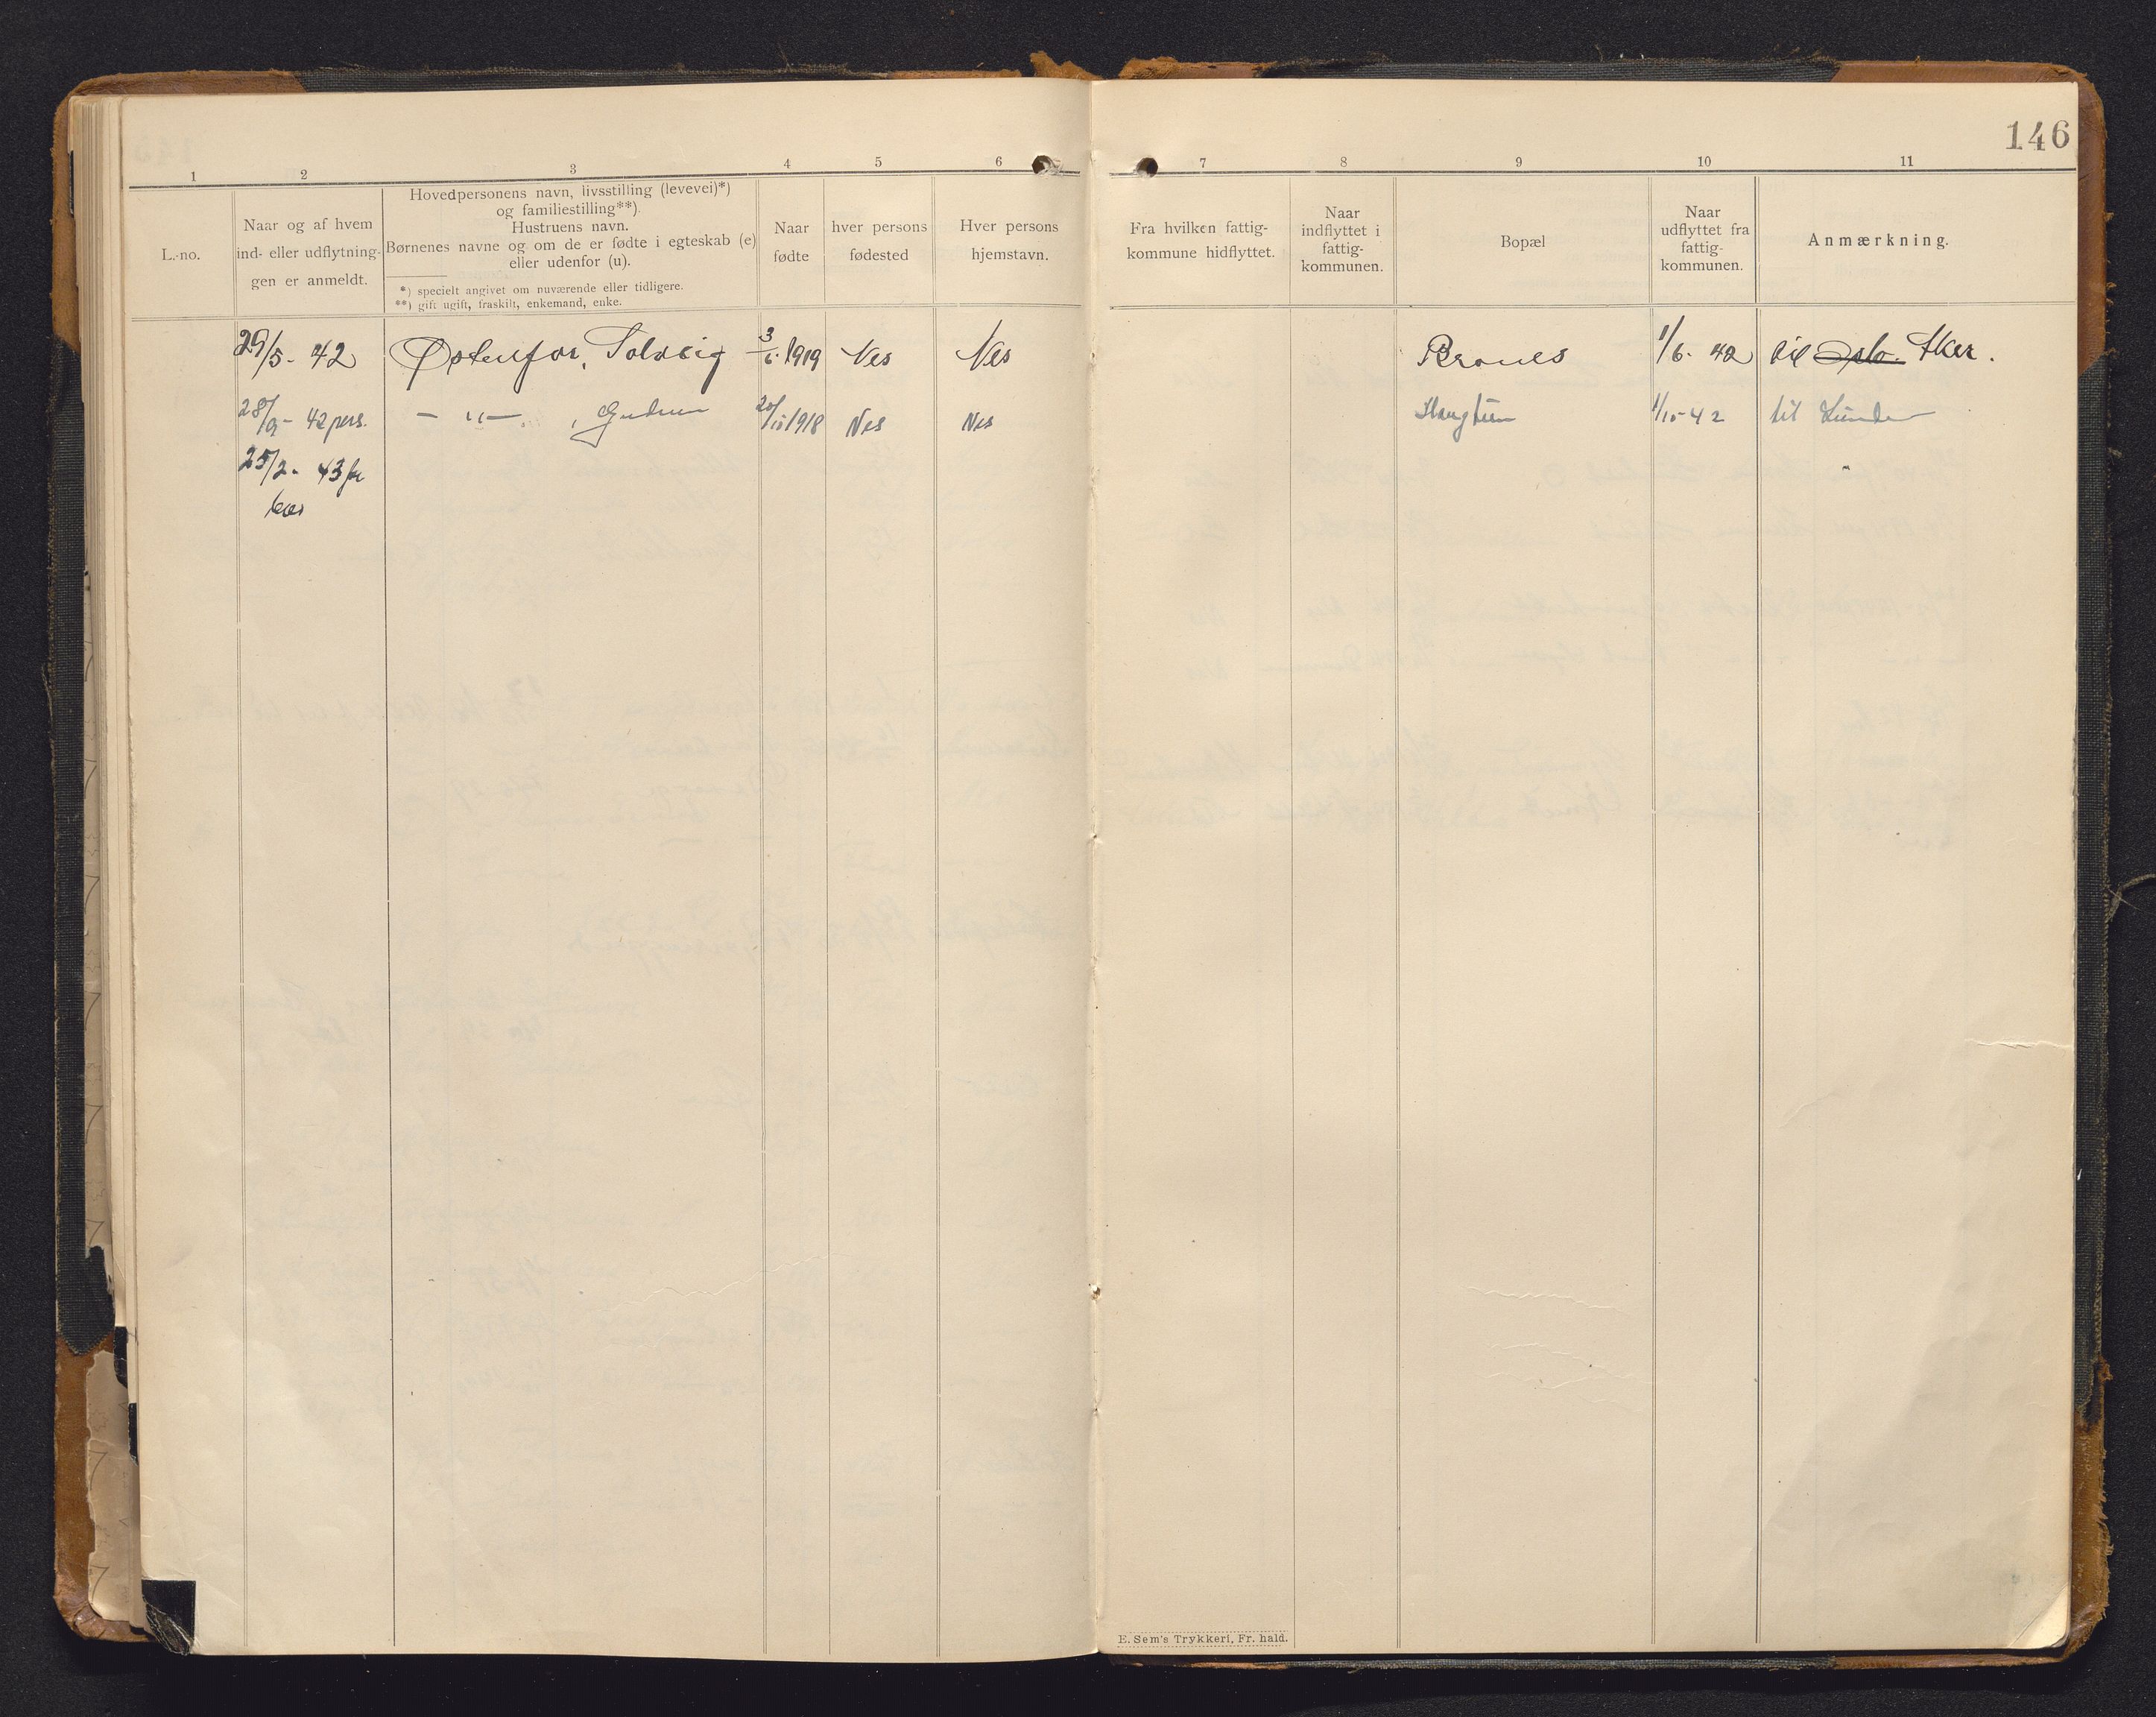 146
1 2 3 4 5 6 7 8 9 10 11
L.-no.
Naar og af hvem
ind- eller udflytnin-
gen er anmeldt.
Hovedpersonens navn, livsstilling (levevei)*)
og familiestilling**).
Hustruens navn.
Børnenes navne og om de er fødte i egteskab (e)
eller udenfor (u).
*) specielt angivet om nuværende eller tidligere.
**) gift ugift, fraskilt, enkemand, enke.
Naar
fødte
hver persons
fødested
Hver persons
hjemstavn.
Fra hvilken fattig-
kommune hidflyttet.
Naar
indflyttet i
fattig-
kommunen.
Bopæl
Naar
udflyttet fra
fattig-
kommunen.
Anmærkning.
29/5- 42 Østenfor, Solveig 3/6.1919 Nes Nes Bromes 1/6. 42 til Oslo. Aker.
28/9- 42 pers. - " - , Gudrun 20/10 1918 Nes Nes 1/10-42 til Lunder
25/2. 43 
E. Sem's Trykkeri, Fr. hald.